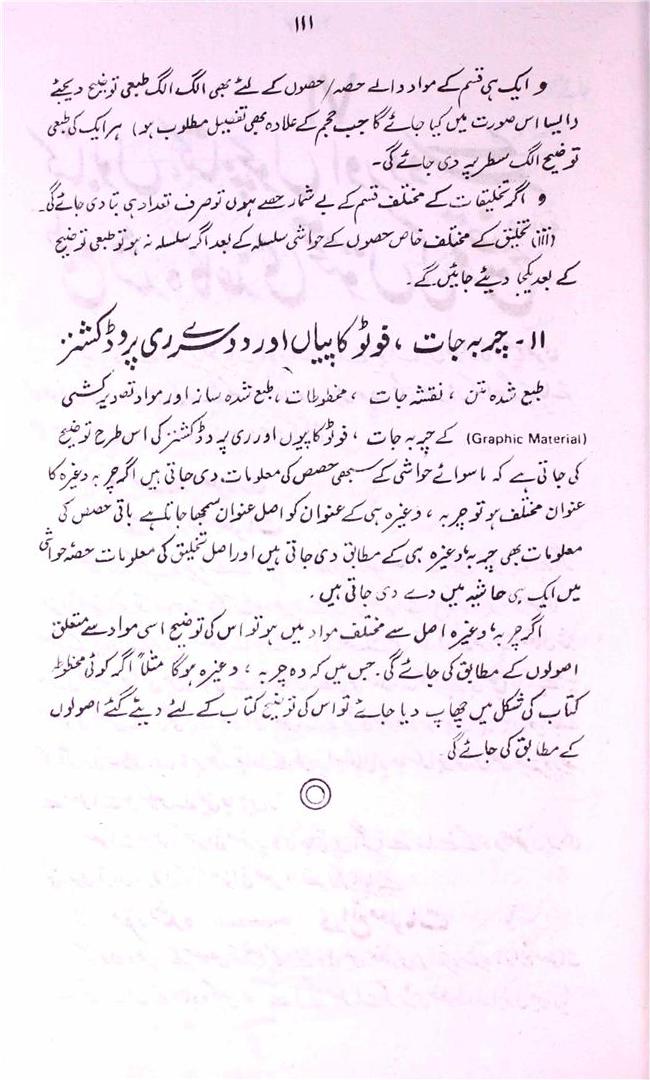 ۱۱۱
و ایک ہی قسم کے مواد والے حصہ/حصوں کے لئے بھی الگ الگ طبعی توضیح دیجئے
(ایسا اس صورت میں کیا جائے گا جب حجم کے علاوہ بھی تفصیل مطلوب ہو) ہر ایک کی طبعی
توضیح الگ سطر پر دی جائے گی۔
و اگر تخلیقات کے مختلف قسم کے بے شمار حصے ہوں تو صرف تعداد ہی بتا دی جائے گی۔
(iii) تخلیق کے مختلف خاص حصوں کے حواشی سلسلہ کے بعد اگر سلسلہ نہ ہو تو طبعی توضیح
کے بعد یکجا دیئے جائیں گے۔
۱۱۔ چربہ جات ، فوٹو کاپیاں اور دوسرے ری پروڈکشنز
طبع شدہ متن ، نقشہ جات ، مخطوطات ، طبع شدہ سازینہ اور مواد تصویر کشی
(Graphic Material) کے چربہ جات ، فوٹو کاپیوں اور ری پروڈکشنز کی اس طرح توضیح
کی جاتی ہے کہ ماسوائے حواشی کے سبھی حصص کی معلومات دی جاتی ہیں اگر چربہ وغیرہ کا
عنوان مختلف ہو تو چربہ ، وغیرہ ہی کے عنوان کو اصل عنوان سمجھا جاتا ہے باقی حصص کی
معلومات بھی چربہ، وغیرہ ہی کے مطابق دی جاتی ہیں اور اصل تخلیق کی معلومات حصہ حواشی
میں ایک ہی حاشیہ میں دے دی جاتی ہیں ۔
اگر چربہ، وغیرہ اصل سے مختلف مواد میں ہو تو اس کی توضیح اسی مواد سے متعلق
اصولوں کے مطابق کی جائے گی۔ جس میں کہ وہ چربہ ، وغیرہ ہوگا مثلاً اگر کوئی مخطوطہ
کتاب کی شکل میں چھاپ دیا جائے تو اس کی توضیح کتاب کے لئے دیئے گئے اصولوں
کے مطابق کی جائے گی